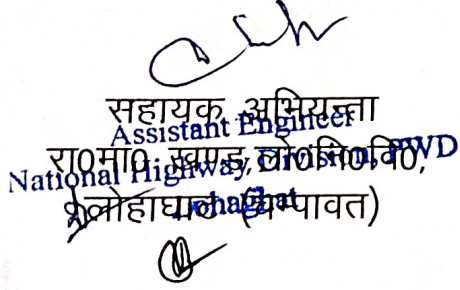 सहायक अभियन्ता
Assistant Engineer
रा0मा0 खण्ड,लो0नि0वि0,
National Highway Division, PWD
लोहाघाट (चम्पावत)
Lohaghat